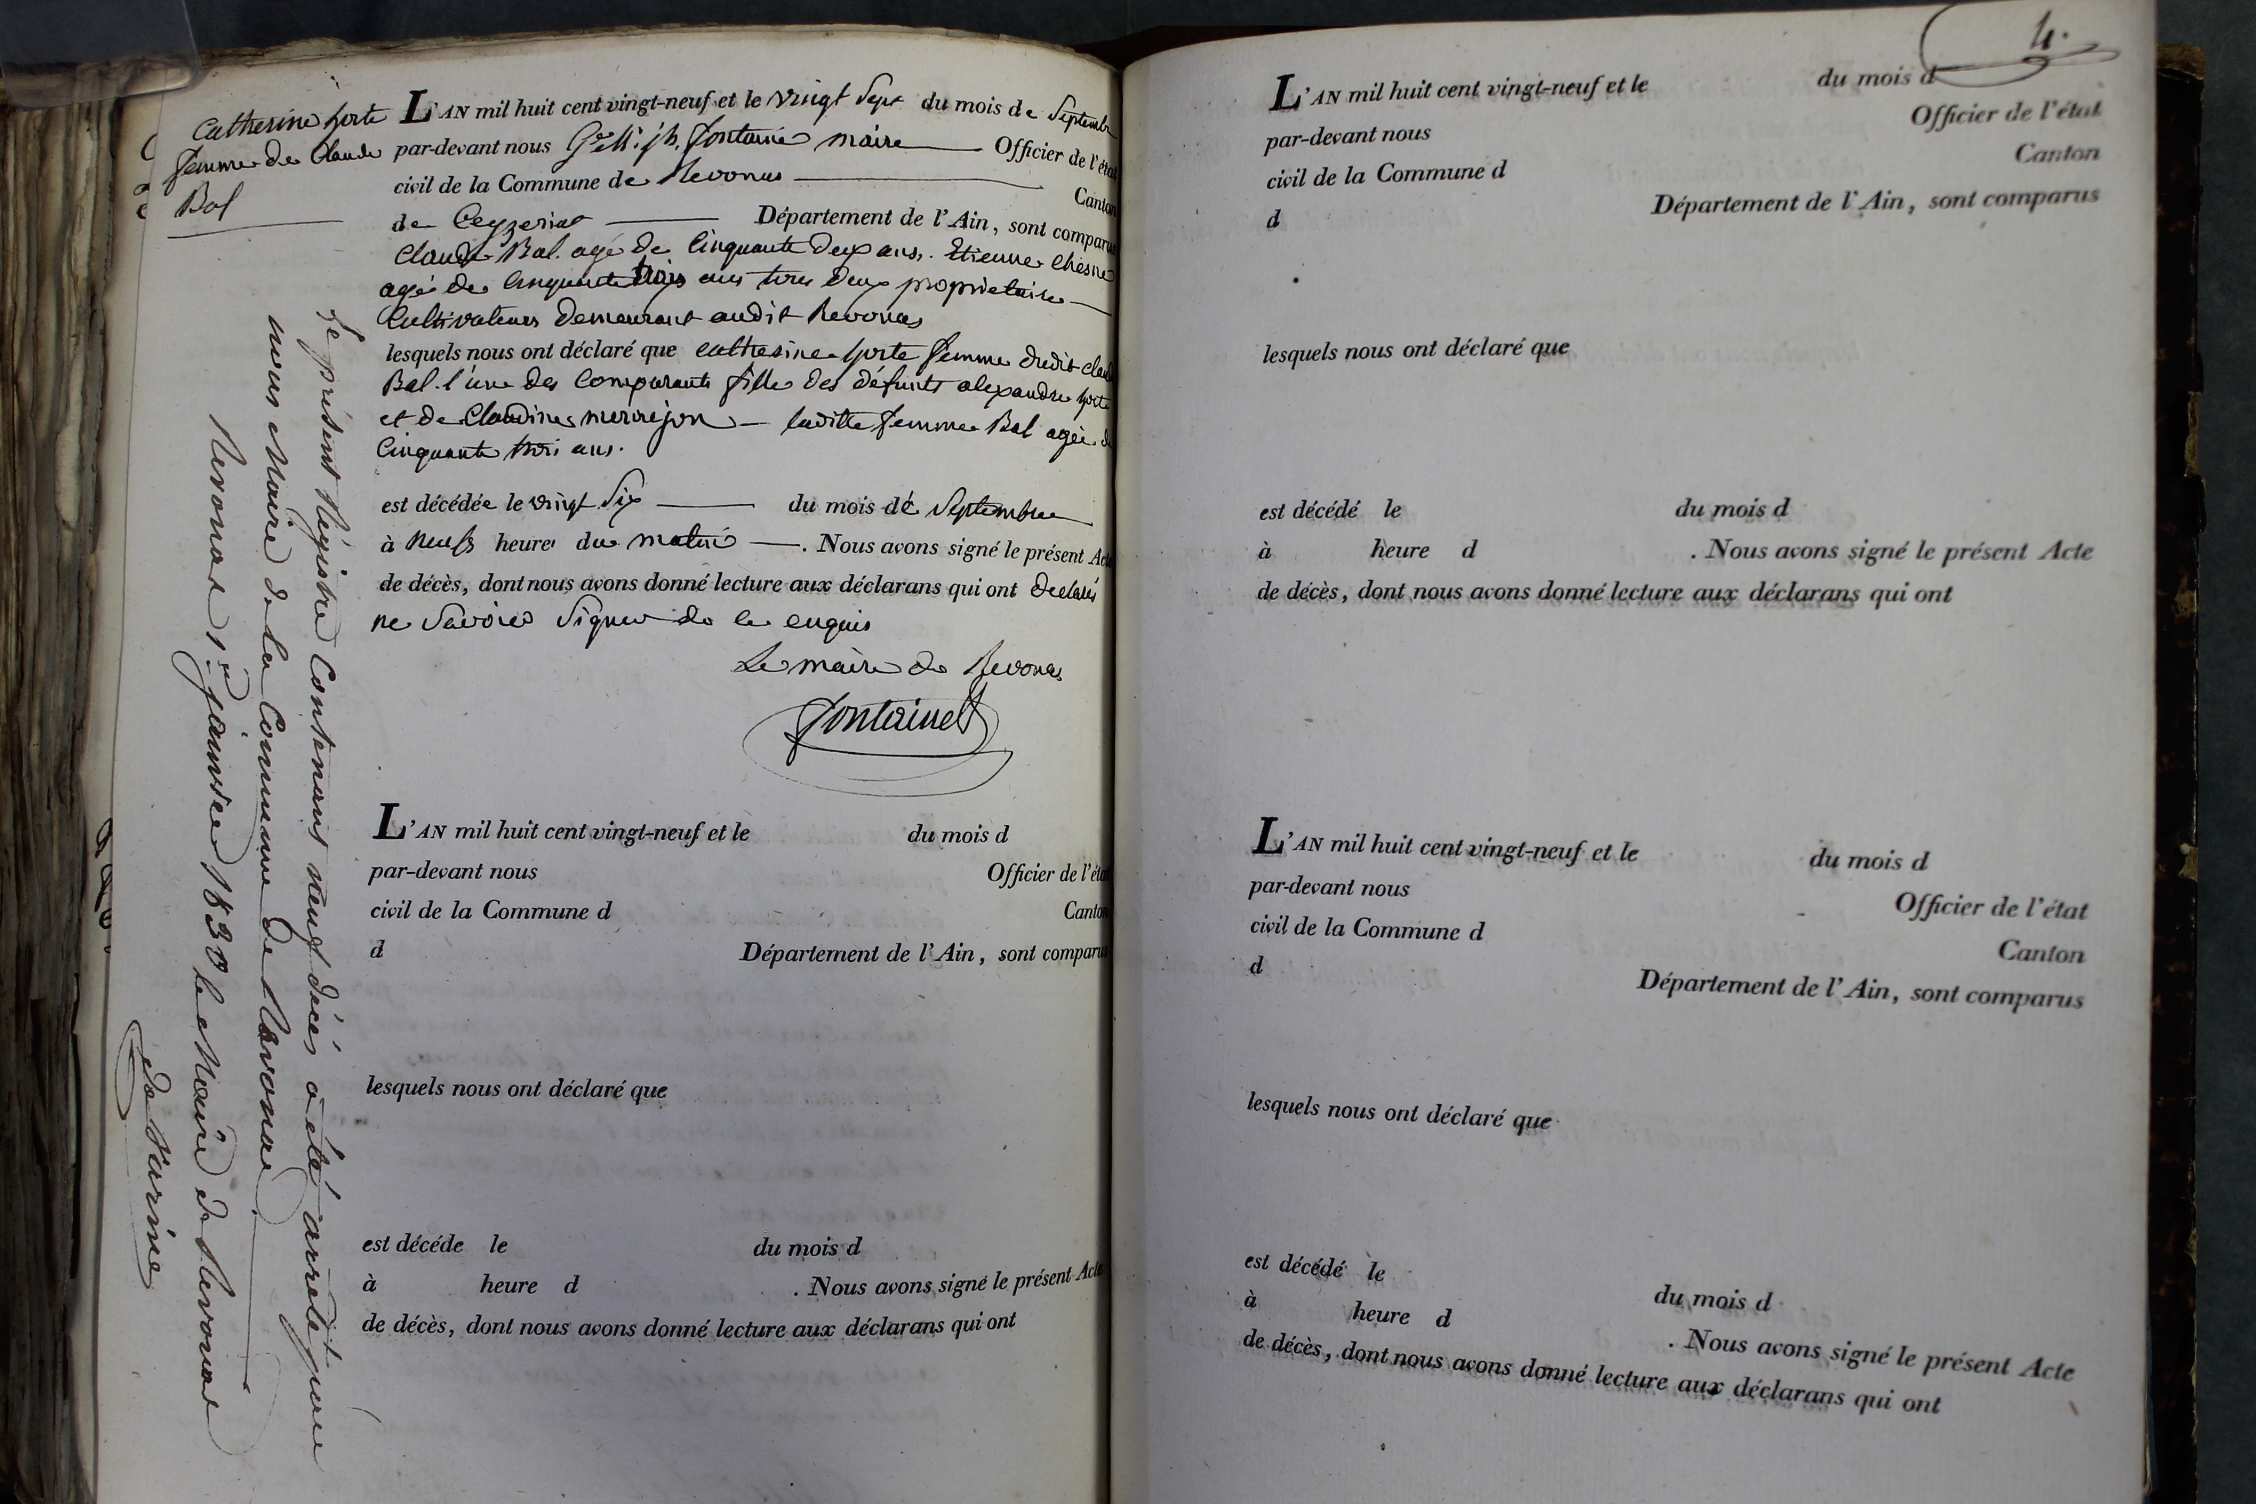 Catherine
femme de Claude
Bal
L'AN mil huit cent vingt-neuf et le vingt Sept du mois de Septembre
par-devant nous fontaine maire Officier de l'état
civil de la Commune de Revonas Canton
de Ceyzeriat Département de l'Ain, sont comparus
Claude Bal. agé de Cinquante deux ans. Etienne Chesne
agé de Cinquante trois ans tous deux proprietaire
Cultivateurs demeurant audit Revonas
lesquels nous ont déclaré que catherine femme dudit claude
Bal. l'une des Comparants fille des défunts alexandre
et de Claudine laditte femme Bal agée de
Cinquante troi ans.
est décédée le vingt Six du mois de Septembre
à neuf heure du matin. Nous avons signé le présent Acte
de décès, dont nous avons donné lecture aux déclarans qui ont declarés
ne Savoire Signer de ce enquis
Le maire de Revonas
fontaine
Le présent Régistre Contenant neuf décès a été arreté par
nous Maire de la Commune de Revonas
Revonas 1er janvier 1830 le Maire de Revonas
de Varine
L'AN mil huit cent vingt-neuf et le du mois d
par-devant nous Officier de l'état
civil de la Commune d Canton
d Département de l'Ain, sont comparus
lesquels nous ont déclaré que
est décéde le du mois d
à heure d . Nous avons signé le présent Acte
de décès, dont nous avons donné lecture aux déclarans qui ont
4.
L'AN mil huit cent vingt-neuf et le du mois d
par-devant nous Officier de l'état
civil de la Commune d Canton
d Département de l'Ain, sont comparus
lesquels nous ont déclaré que
est décédé le du mois d
à heure d . Nous avons signé le présent Acte
de décès, dont nous avons donné lecture aux déclarans qui ont
L'AN mil huit cent vingt-neuf et le du mois d
par-devant nous Officier de l'état
civil de la Commune d Canton
d Département de l'Ain, sont comparus
lesquels nous ont déclaré que
est décédé le du mois d
à heure d . Nous avons signé le présent Acte
de décès, dont nous avons donné lecture aux déclarans qui ont